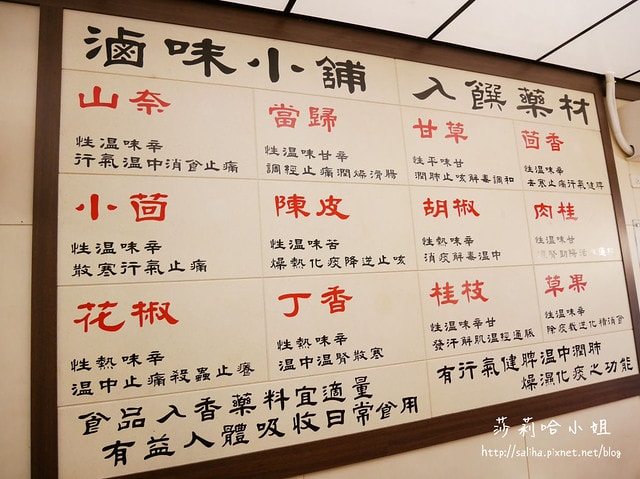 滷味小舖 入饌藥材
山奈
性溫味辛
行氣溫中消食止痛
當歸
性溫味甘辛
調經止痛潤燥滑腸
甘草
性平味甘
潤肺止咳解毒調和
茴香
性溫味辛
去寒止痛行氣健脾
小茴
性溫味辛
散寒行氣止痛
陳皮
性溫味苦
燥熱化痰降逆止咳
胡椒
性熱味辛
消痰解毒溫中
肉桂
性溫味甘
花椒
性熱味辛
溫中止痛殺蟲止癢
丁香
性熱味辛
溫中溫腎散寒
桂枝
性溫味辛甘
發汗解肌溫經通脈
草果
性溫味辛
除痰截逆化積消食
食品入香藥料宜適量
有益人體吸收日常食用
有行氣健脾溫中潤肺
燥濕化痰之功能
莎莉哈小姐
http://saliha.pixnet.net/blog